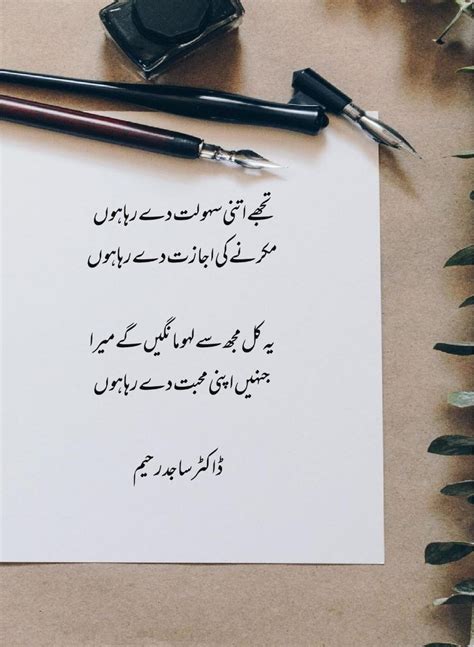 تجھے اتنی سہولت دے رہا ہوں
مکرنے کی اجازت دے رہا ہوں
یہ کل مجھ سے لہو مانگیں گے میرا
جنہیں اپنی محبت دے رہا ہوں
ڈاکٹر ساجد رحیم